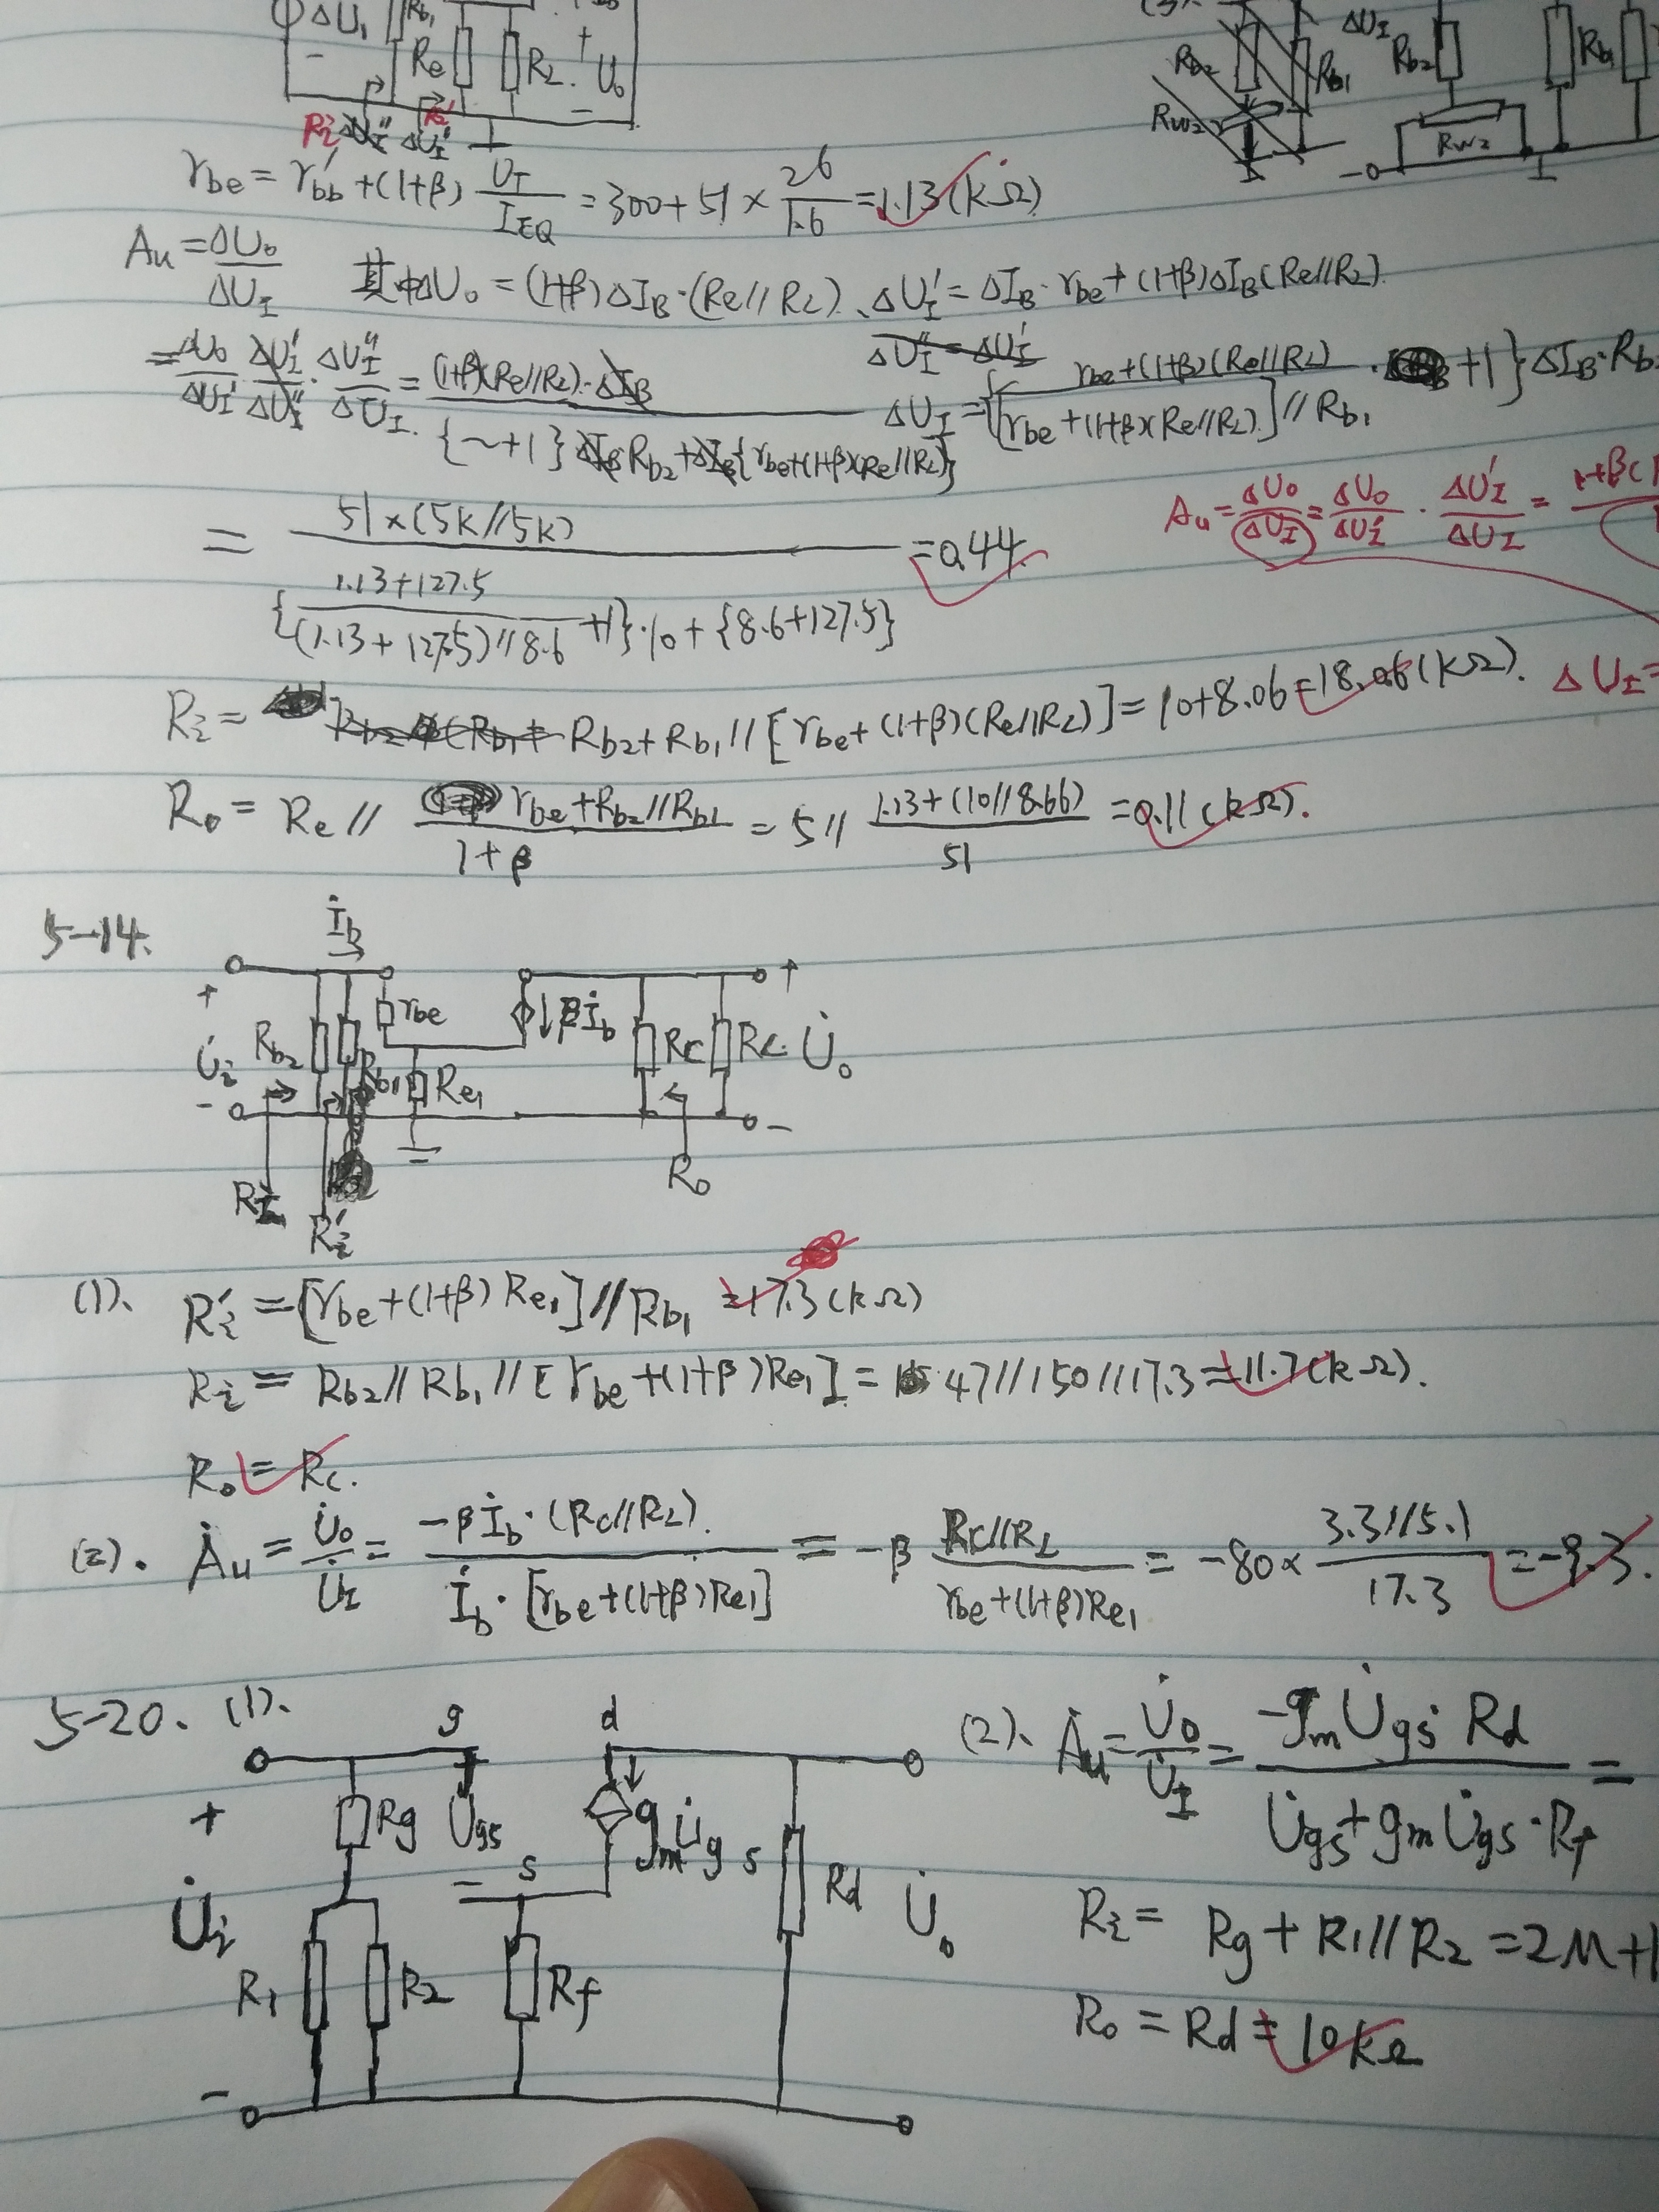 ΔU₁ Rb₁ Re RL + U₀ −
Ri ΔU_I'' ΔU_I'
(3). Rb2 Rb1 Rw2 ΔU_I Rb2 Rb1 Rw2
rbe = r'bb + (1+β) U_T/I_EQ = 300 + 51 × 26/1.6 = 1.13 (kΩ)
Au = ΔU₀/ΔU_I 其中ΔU₀ = (1+β)ΔI_B·(Re//RL)、ΔU_I' = ΔI_B·rbe + (1+β)ΔI_B(Re//RL)
ΔU_I'' = ΔU_I'
= ΔU₀/ΔU_I' · ΔU_I'/ΔU_I'' · ΔU_I''/ΔU_I = (1+β)(Re//RL)·ΔI_B / {~+1}ΔI_B Rb2 + ΔI_B{rbe+(1+β)(Re//RL)}
ΔU_I = { rbe+(1+β)(Re//RL) / [rbe+(1+β)(Re//RL)]//Rb1 +1}ΔI_B·Rb2
Au = ΔU₀/ΔU_I = ΔU₀/ΔU_I' · ΔU_I'/ΔU_I = 1+β(
= 51×(5k//5k) / {1.13+127.5 / (1.13+127.5)//8.6 +1}·10 + {8.6+127.5} = 0.44
Ri = Rb2 + Rb1 // [rbe + (1+β)(Re//RL)] = 10+8.06 = 18.06 (kΩ). ΔU_I =
R₀ = Re // rbe+Rb2//Rb1 / 1+β = 5 // 1.13+(10//8.66) / 51 = 0.11 (kΩ).
5-14.
İb
+ U̇i − Rb2 Rb1 rbe Re1 βİb Rc RL U̇₀ + −
Ri Ri' R₀
(1). Ri' = [rbe+(1+β)Re1] // Rb1 = 17.3 (kΩ)
Ri = Rb2 // Rb1 // [rbe+(1+β)Re1] = 47//150//17.3 = 11.7 (kΩ).
R₀ = Rc.
(2). Ȧu = U̇₀/U̇_I = −βİb·(Rc//RL) / İb·[rbe+(1+β)Re1] = −β Rc//RL / rbe+(1+β)Re1 = −80 × 3.3//5.1 / 17.3 = −9.3.
5-20. (1).
g d s
+ U̇i − Rg U̇gs gmU̇gs R1 R2 Rf Rd U̇₀
(2). Ȧu = U̇₀/U̇_I = −gmU̇gs Rd / U̇gs+gmU̇gs·Rf =
Ri = Rg + R1//R2 = 2M+1
R₀ = Rd = 10kΩ